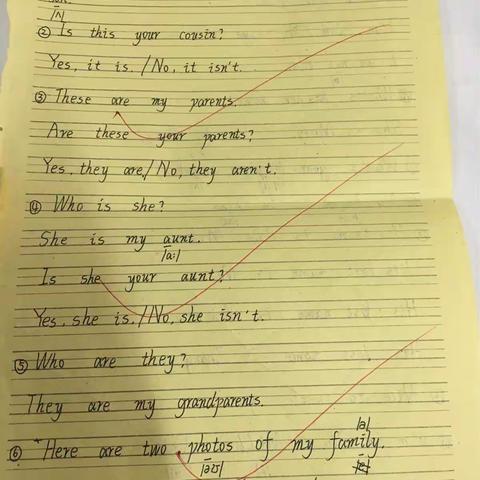 /ʌ/
② Is this your cousin?
Yes, it is. / No, it isn't.
③ These are my parents.
Are these your parents?
Yes, they are / No, they aren't.
④ Who is she?
She is my aunt.
/ɑ:/
Is she your aunt?
Yes, she is. / No, she isn't.
⑤ Who are they?
They are my grandparents.
/ə/
⑥ Here are two photos of my family.
/əʊ/